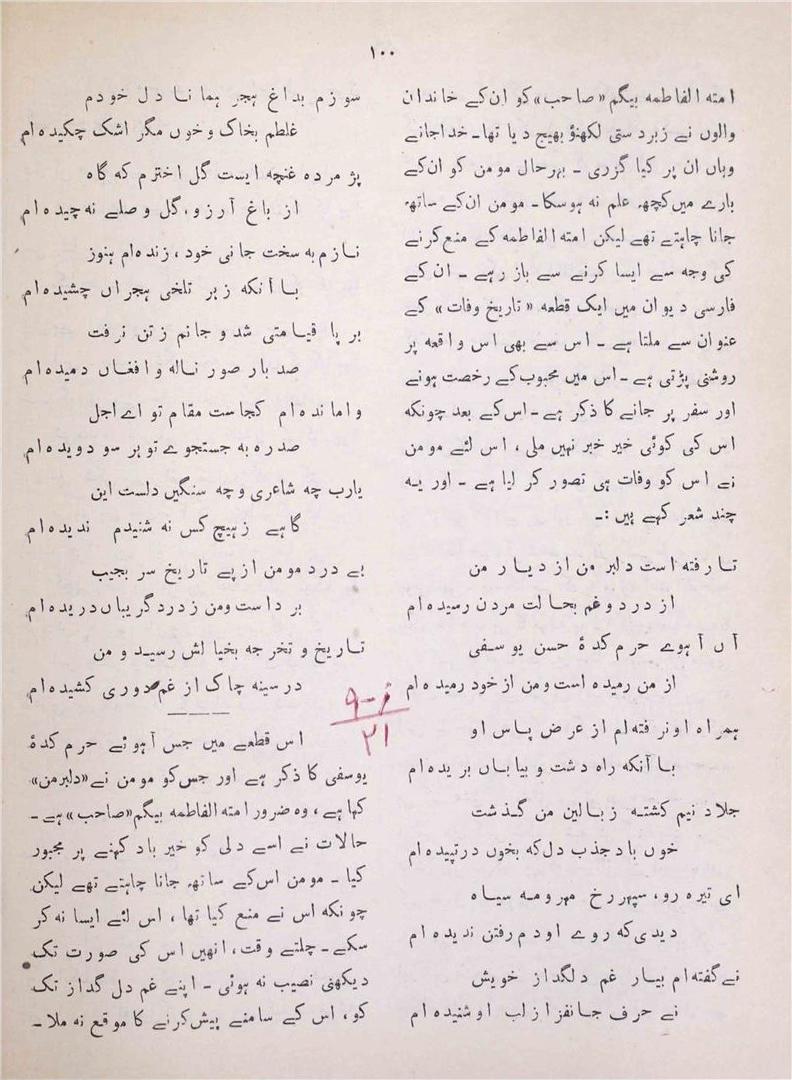 ۱۰۰
امتہ الفاطمہ بیگم «صاحب» کو ان کے خاندان
والوں نے زبردستی لکھنؤ بھیج دیا تھا۔ خدا جانے
وہاں ان پر کیا گزری ۔ بہر حال مومن کو ان کے
بارے میں کچھ علم نہ ہوسکا۔ مومن ان کے ساتھ
جانا چاہتے تھے لیکن امتہ الفاطمہ کے منع کرنے
کی وجہ سے ایسا کرنے سے باز رہے ۔ ان کے
فارسی دیوان میں ایک قطعہ «تاریخ وفات» کے
عنوان سے ملتا ہے ۔ اس سے بھی اس واقعہ پر
روشنی پڑتی ہے ۔ اس میں محبوب کے رخصت ہونے
اور سفر پر جانے کا ذکر ہے ۔ اس کے بعد چونکہ
اس کی کوئی خیر خبر نہیں ملی ، اس لئے مومن
نے اس کو وفات ہی تصور کر لیا ہے ۔ اور یہ
چند شعر کہے ہیں :۔
تا رفتہ است دلبر من از دیار من
از درد و غم بحالت مردن رسیدہ ام
آں آہوے حرم کدۂ حسن یوسفی
از من رمیدہ است و من از خود رمیدہ ام
ہمراہ او نرفتہ ام از عرض پاس او
با آنکہ راہ دشت و بیاباں بریدہ ام
جلاد نیم کشتہ ز بالین من گذشت
خوں باد جذب دل کہ بخوں در تپیدہ ام
ای تیرہ رو، سپہر رخ مہر و مہ سیاہ
دیدی کہ روے او دم رفتن ندیدہ ام
نے گفتہ ام بیار غم دلگداز خویش
نے حرف جانفزا از لب او شنیدہ ام
سوزم بداغ ہجر ہمانا دل خودم
غلطم بخاک و خوں مگر اشک چکیدہ ام
پژمردہ غنچہ ایست گل اخترم کہ گاہ
از باغ آرزو، گل وصلے نہ چیدہ ام
نازم بہ سخت جانی خود ، زندہ ام ہنوز
با آنکہ زہر تلخی ہجراں چشیدہ ام
بر پا قیامتی شد و جانم ز تن نرفت
صد بار صور نالہ و افغاں دمیدہ ام
واماندہ ام کجاست مقام تو اے اجل
صد رہ بہ جستجوے تو ہر سو دویدہ ام
یارب چہ شاعری و چہ سنگیں دلست این
گاہے ز ہیچ کس نہ شنیدم ندیدہ ام
بے درد مومن از پے تاریخ سر بجیب
بر داست و من ز درد گریباں دریدہ ام
تاریخ و تخرجہ بخیالش رسید و من
در سینہ چاک از غم دوری کشیدہ ام
اس قطعے میں جس آہوئے حرم کدۂ
یوسفی کا ذکر ہے اور جس کو مومن نے «دلبر من»
کہا ہے ، وہ ضرور امتہ الفاطمہ بیگم «صاحب» ہے ۔
حالات نے اسے دلی کو خیر باد کہنے پر مجبور
کیا ۔ مومن اس کے ساتھ جانا چاہتے تھے لیکن
چونکہ اس نے منع کیا تھا ، اس لئے ایسا نہ کر
سکے ۔ چلتے وقت ، انھیں اس کی صورت تک
دیکھنی نصیب نہ ہوئی ۔ اپنے غم دل گداز تک
کو ، اس کے سامنے پیش کرنے کا موقع نہ ملا ۔
۲۱